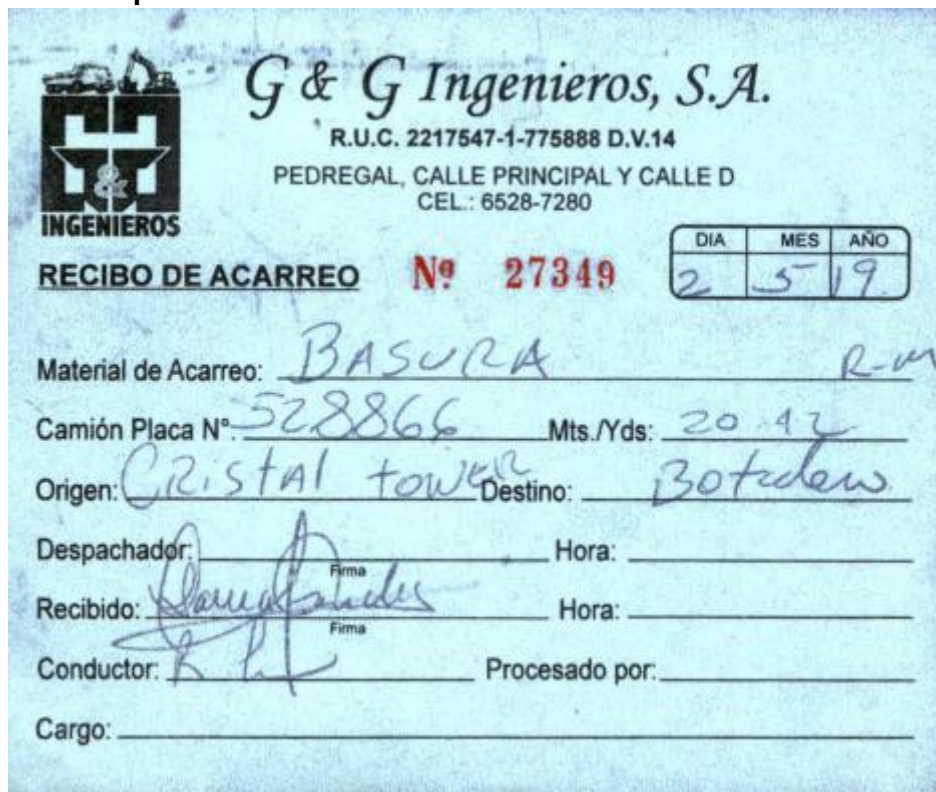 G & G Ingenieros, S.A.
R.U.C. 2217547-1-775888 D.V.14
PEDREGAL, CALLE PRINCIPAL Y CALLE D
CEL.: 6528-7280
G & G
INGENIEROS
DIA MES AÑO
RECIBO DE ACARREO Nº 27349 2 5 19.
Material de Acarreo: BASURA R-M
Camión Placa N°. 528866 Mts./Yds: 20.42
Origen: CRistAl toweR Destino: Botadero
Despachador: Hora:
Firma
Recibido: Hora:
Firma
Conductor: Procesado por:
Cargo: